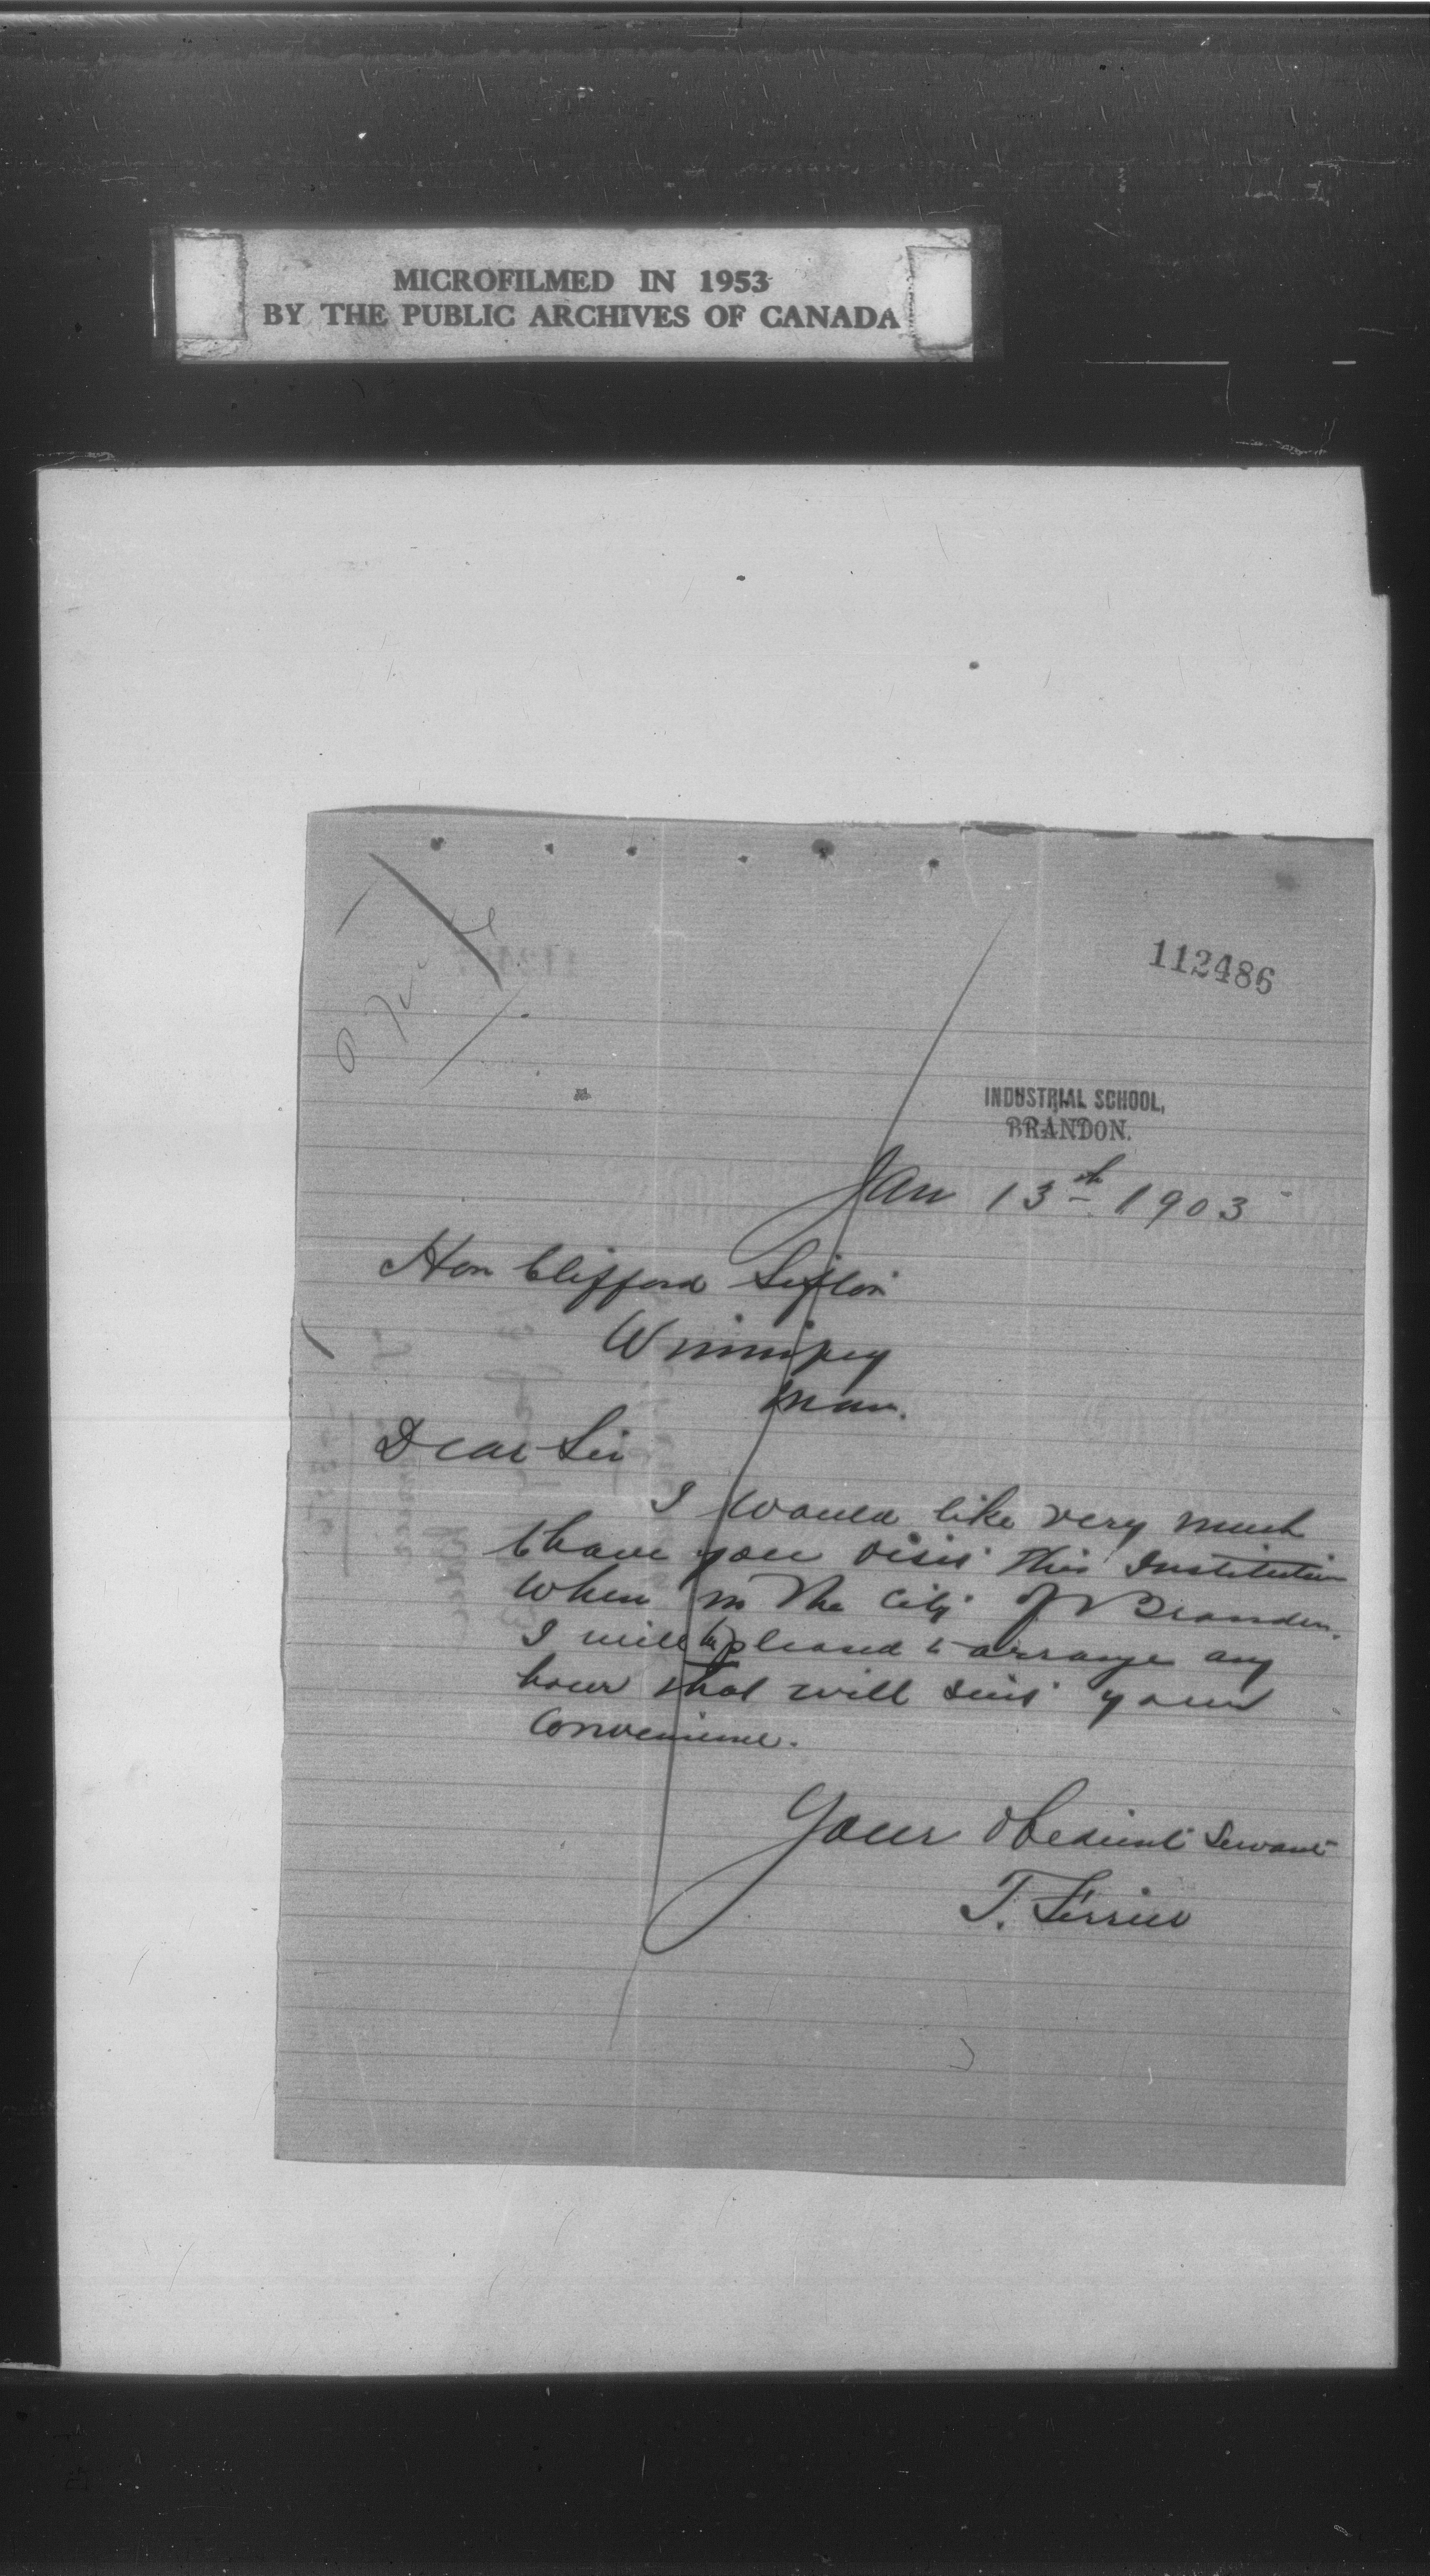 MICROFILMED IN 1953
BY THE PUBLIC ARCHIVES OF CANADA
112486
INDUSTRIAL SCHOOL,
BRANDON.
Jan 13th 1903
Hon Clifford Sifton
Winnipeg
Man.
Dear Sir
I would like very much
to have you visit this Institution
when in the City of Brandon.
I will be pleased to arrange any
hour that will suit your
convenience.
Your obedient Servant
T. Ferrier